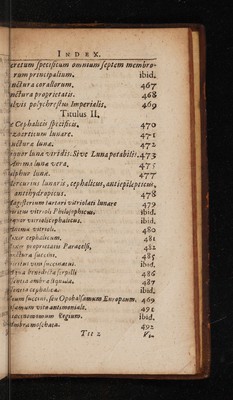 INDEX.
cretum specificum omnium septem membro-
rum principalium. ibid.
nctura corallorum. 467
nctura proprietatis. 468
ulvis polychrestus Imperialis. 469
Titulus II.
e Cephalicis specificis. 470
ezoarticum lunare. 471
inctura lunæ. 472
iquor lunæ viridis. Sive Luna potabilis. 473
luna vera. 475
ulphur lunæ. 477
ercurius lunaris, cephalicus, antiepilepticus,
antihydropicus. 478
agisterium tartari vitriolati lunare 479
piritus vitrioli Philosophicus. ibid.
vitrioli cephalicus. ibid.
vitrioli. 480
cephalicum. 481
proprietatis Paracelsi. 482
inctura succini. 485
piritus vini succinatus. ibid.
benedicta serpilli 486
ssentia ambræ liquida. 487
ssentia cephalica. ibid.
leum succini, seu Opobalsamum Europæum. 469
alsamum vitæ antimoniale. 491
regium. ibid.
ambra moschata. 492
Ttt 2